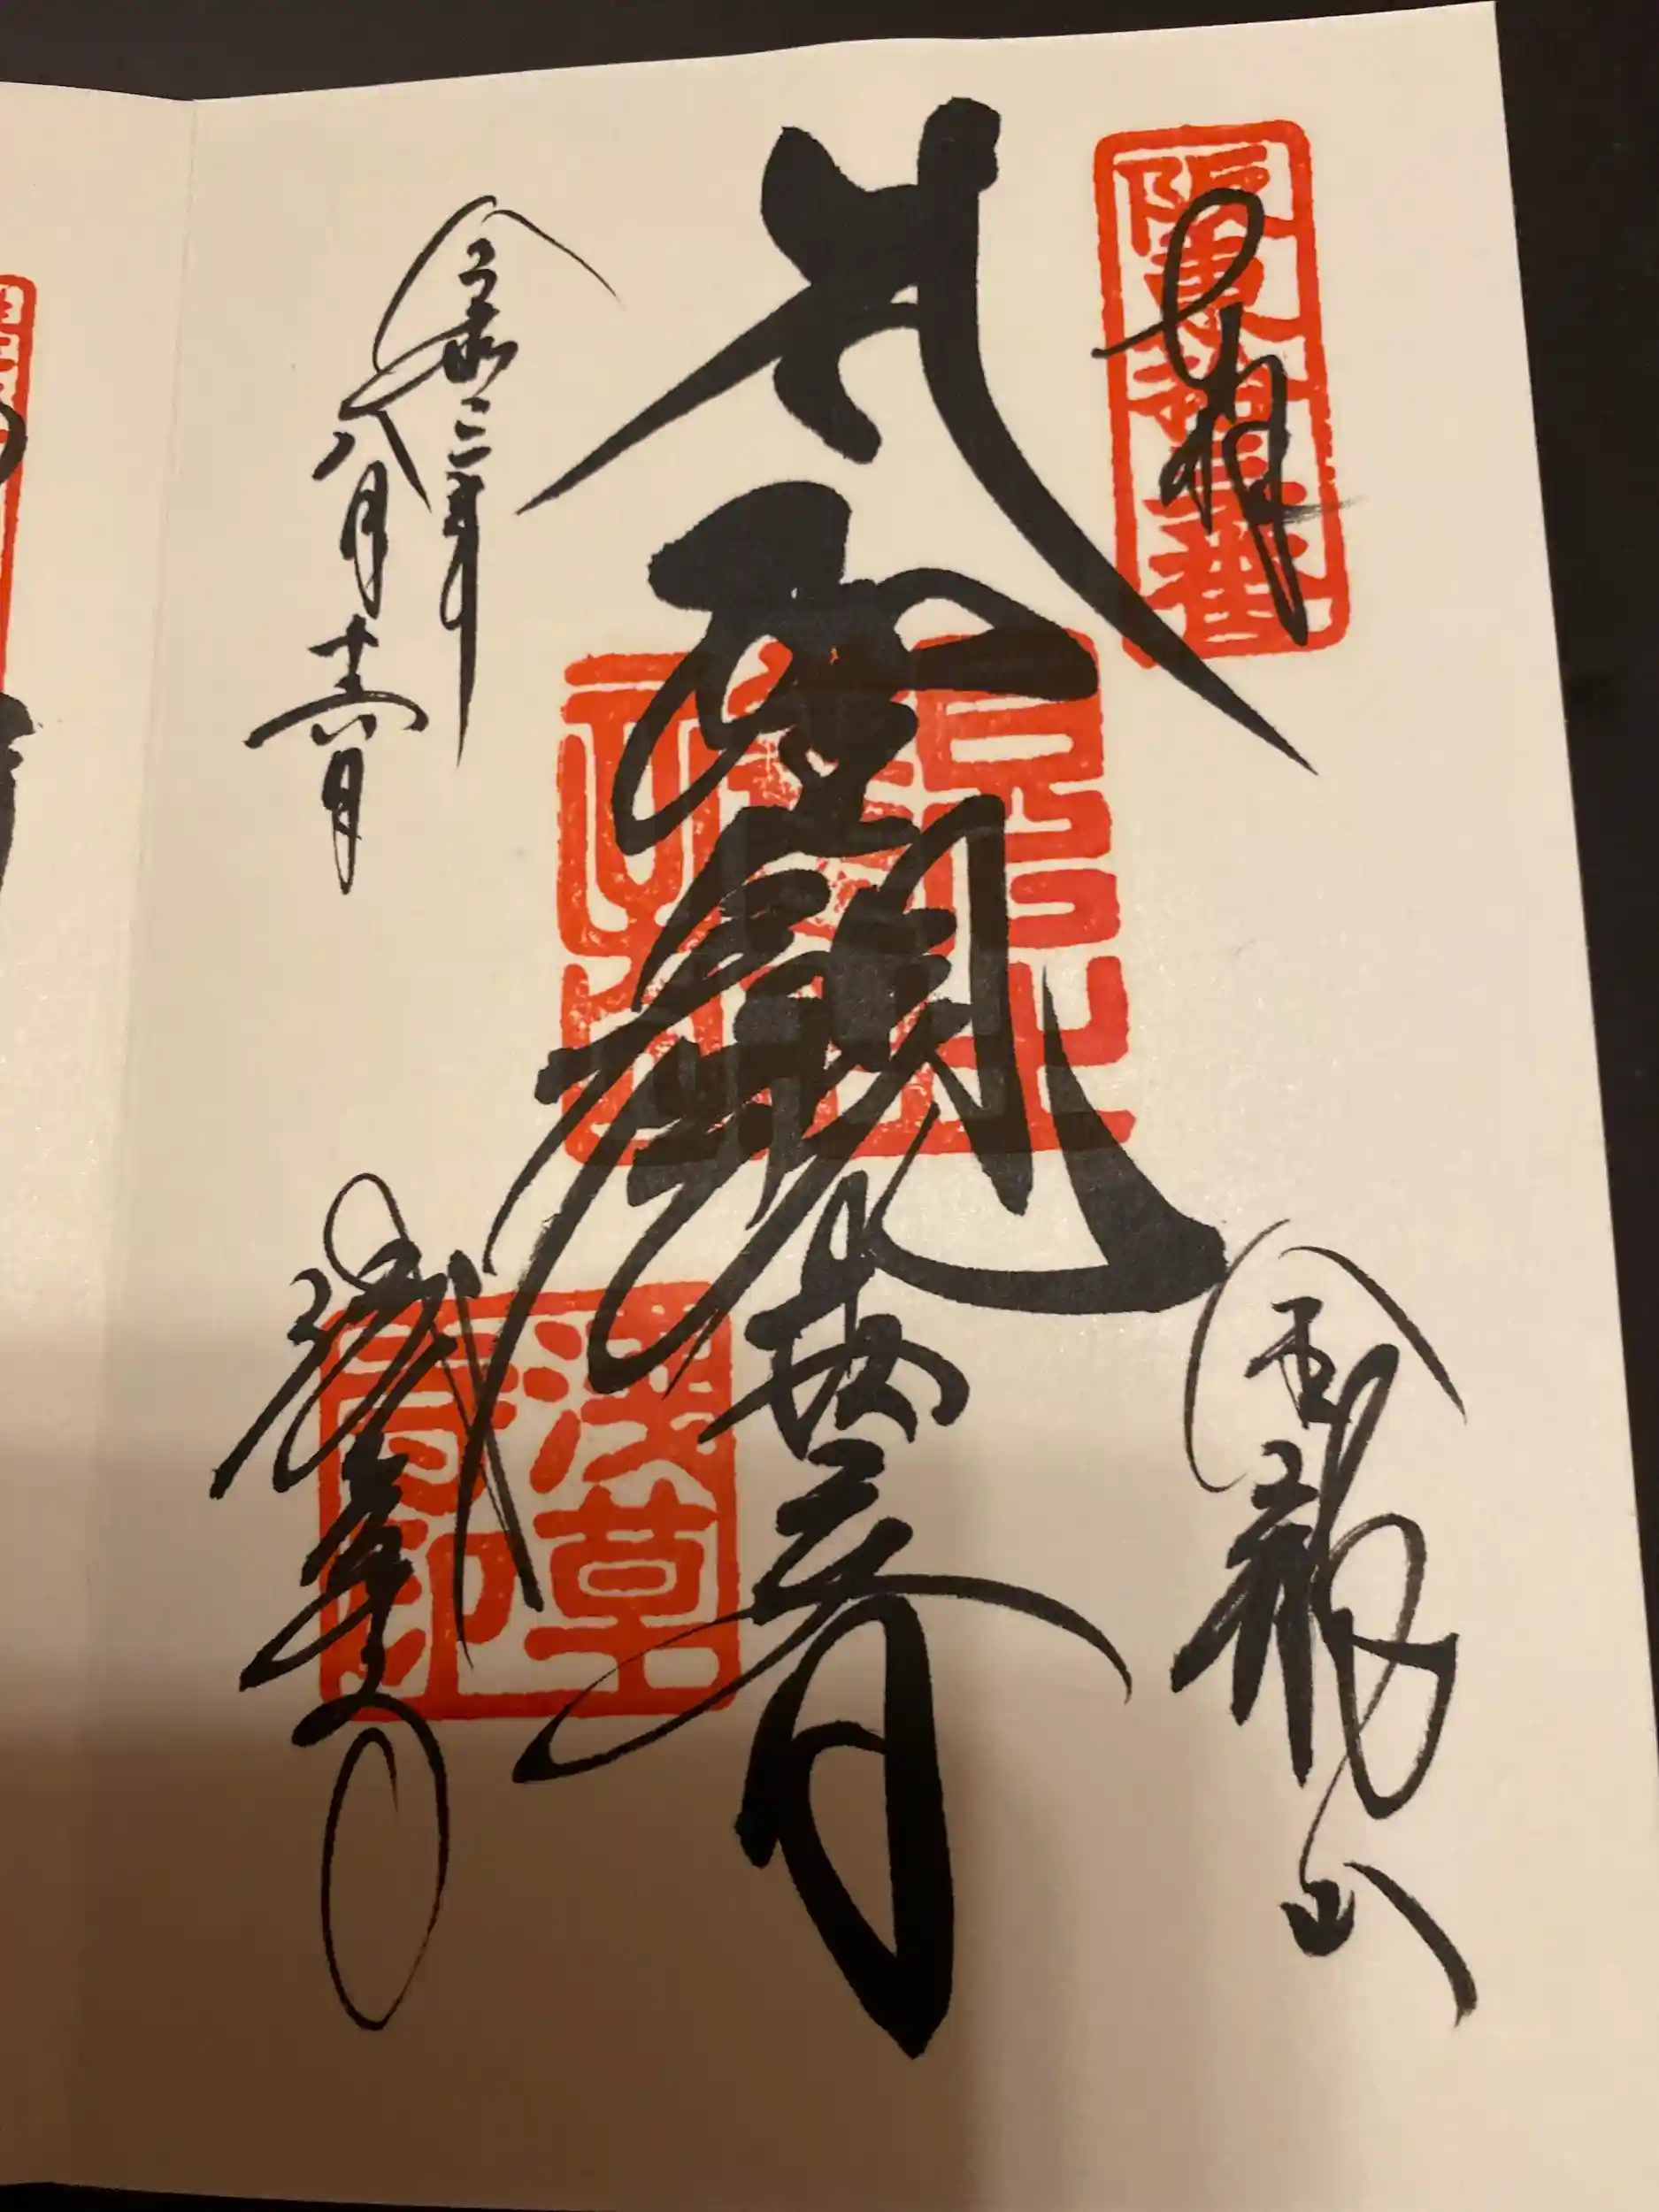 奉拝
阪東拾三番
聖観世音
金龍山
令和二年
八月十六日
浅草寺
浅草
寺印